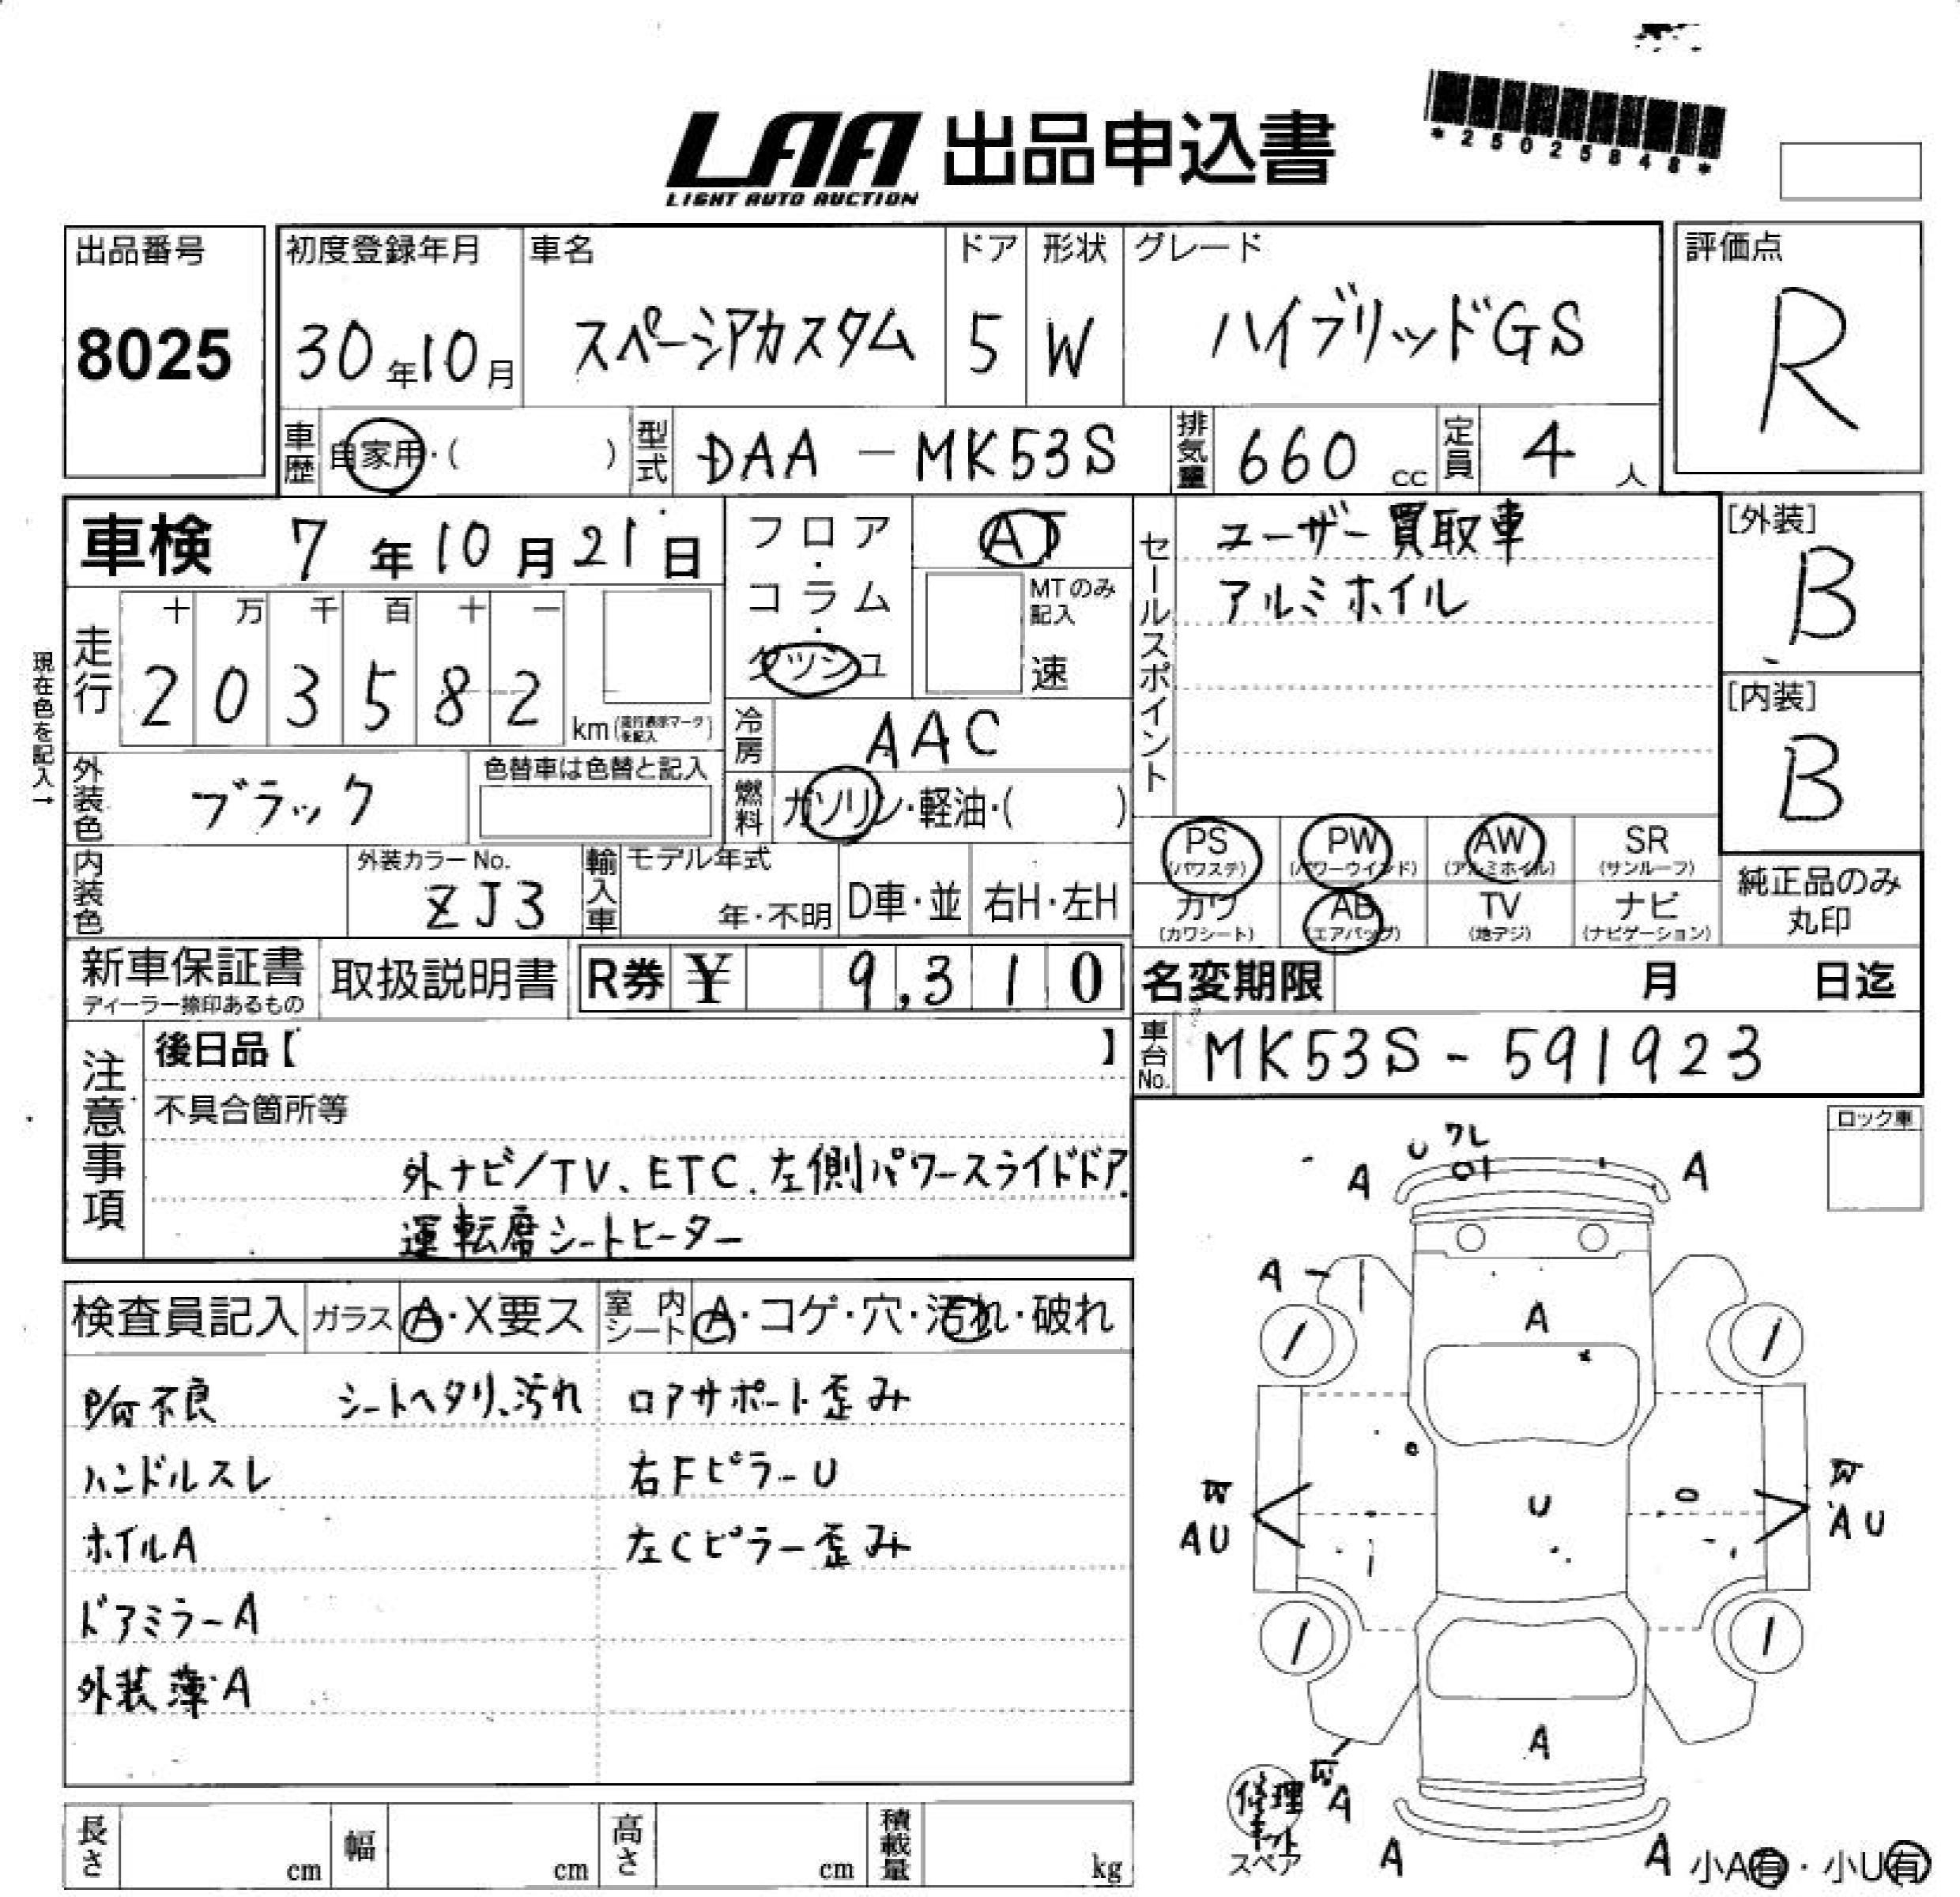 LAA 出品申込書
LIGHT AUTO AUCTION
*25025848*
出品番号
8025
初度登録年月
30年10月
車名
スペーシアカスタム
ドア
5
形状
W
グレード
ハイブリッドGS
評価点
R
車歴
自家用・( )
型式
DAA-MK53S
排気量
660 cc
定員
4 人
車検 7年10月21日
フロア・コラム・ダッシュ
AT
MTのみ記入
速
セールスポイント
ユーザー買取車
アルミホイル
[外装]
B
[内装]
B
現在色を記入→
走行
十 万 千 百 十 一
2 0 3 5 8 2
km(走行表示マークを記入)
冷房
AAC
燃料
ガソリン・軽油・( )
外装色
ブラック
色替車は色替と記入
内装色
外装カラーNo.
ZJ3
輸入車
モデル年式
年・不明
D車・並
右H・左H
PS (パワステ)
PW (パワーウインド)
AW (アルミホイル)
SR (サンルーフ)
カワ (カワシート)
AB (エアバッグ)
TV (地デジ)
ナビ (ナビゲーション)
純正品のみ丸印
新車保証書
ディーラー捺印あるもの
取扱説明書
R券 ¥ 9,310
名変期限 月 日迄
車台No.
MK53S-591923
注意事項
後日品【 】
不具合箇所等
外ナビ/TV、ETC、左側パワースライドドア、
運転席シートヒーター
ロック車
検査員記入
ガラス A・X要ス
室内シート A・コゲ・穴・汚れ・破れ
シートヘタリ、汚れ
ロアサポート歪み
ハンドルスレ
右FピラーU
ホイルA
左Cピラー歪み
ドアミラーA
外装薄A
U
ワレ
A
A
A
A
U
AU
AU
A
修理キット
スペア
A
A
A
小A有・小U有
長さ cm
幅 cm
高さ cm
積載量 kg